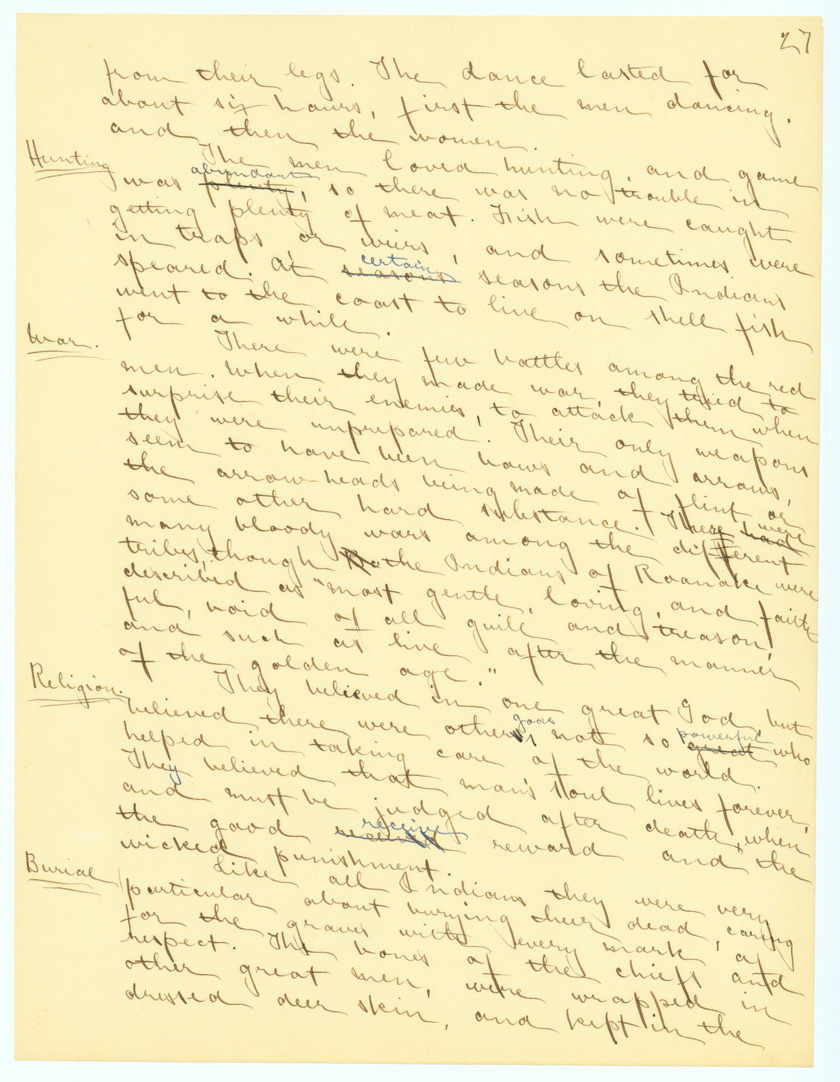 27
from their legs. The dance lasted for
about six hours, first the men dancing.
and then the women.
Hunting The men loved hunting, and game
was plenty abundant, so there was no trouble in
getting plenty of meat. Fish were caught
in traps or weirs, and sometimes were
speared. At seasons certain seasons the Indians
went to the coast to live on shell fish
for a while.
War. There were few battles among the red
men. When they made war, they tried to
surprise their enemies, to attack them when
they were unprepared. Their only weapons
seem to have been bows and arrows,
the arrow-heads being made of flint or
some other hard substance. There had were
many bloody wars among the different
tribes, though the Indians of Roanoke were
described as "most gentle, loving, and faith
ful, void of all guile and treason,
and such as live after the manner
of the golden age."
Religion. They believed in one great God, but
believed there were other gods not so great powerful who
helped in taking care of the world.
They believed that man's soul lives forever,
and must be judged after death, when
the good receive reward and the
wicked punishment.
Burial Like all Indians they were very
particular about burying their dead, caring
for the graves with every mark of
respect. The bones of the chiefs and
other great men, were wrapped in
dressed deer skin, and kept in the